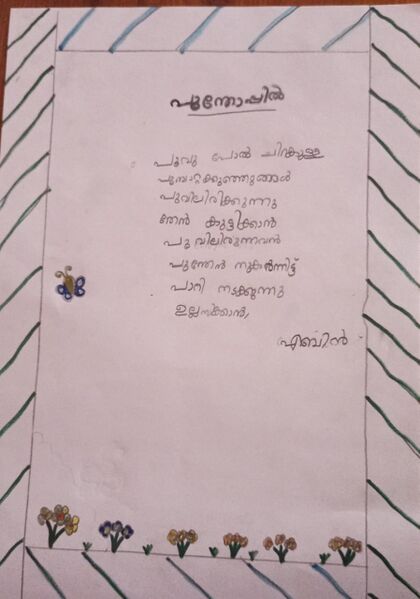 പൂന്തോപ്പിൽ
പൂവു പോൽ ചിറകുള്ള
പൂമ്പാറ്റക്കുഞ്ഞുങ്ങൾ
പൂവിലിരിക്കുന്നു
തേൻ കുടിക്കാൻ
പൂവിലിരുന്നവൻ
പൂന്തേൻ നുകർന്നിട്ട്
പാറി നടക്കുന്നു
ഉല്ലസിക്കാൻ,
എബിൻ